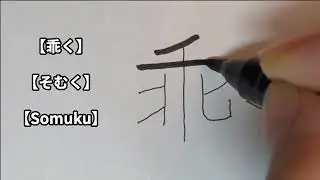 【乖く】
【そむく】
【Somuku】
乖